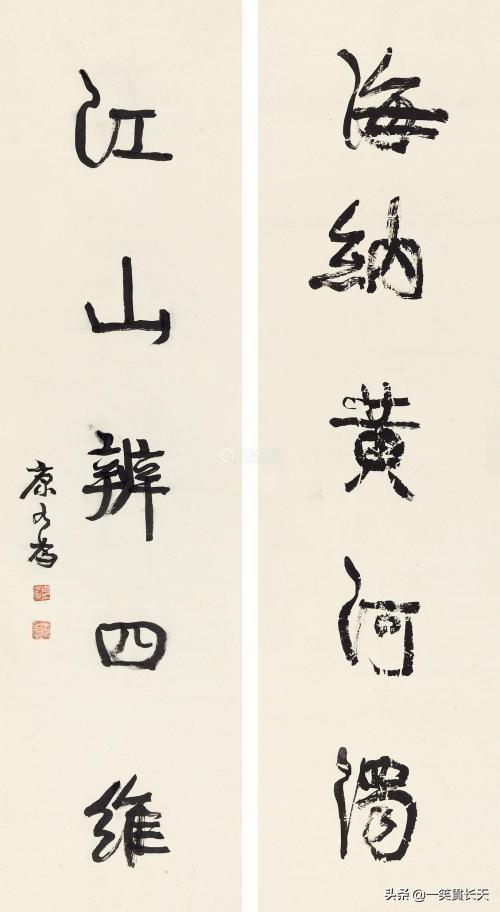 海納黃河濁
江山辨四維
康有為
头条 @一笑貫长天